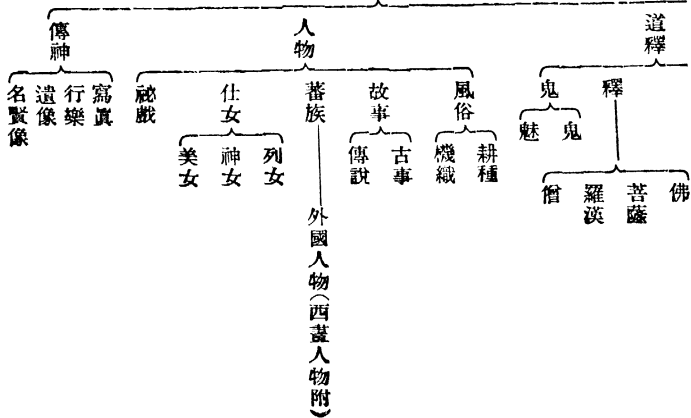 道釋
釋
佛
菩薩
羅漢
僧
鬼
鬼
魅
人物
風俗
耕種
機織
故事
古事
傳說
蕃族
外國人物(西畫人物附)
仕女
列女
神女
美女
祕戲
傳神
寫眞
行樂
遺像
名賢像